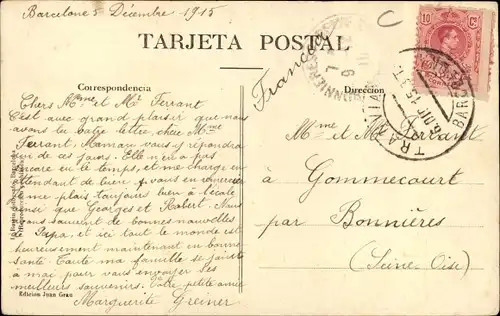 Barcelone 5 Décembre 1915
TARJETA POSTAL
10 Cs
Correspondencia
Dirección
Francia
Chers Mme et Mr Ferrant
C'est avec grand plaisir que nous
avons lu votre lettre, chère Mme
Ferrant. Maman vous y répondra
un de ces jours. Elle n'en a pas
encore eu le temps, et me charge en
attendant de
me plaît toujours bien à l'école
ainsi que Georges et Robert. Nous
avons souvent de bonnes nouvelles
de Papa, et ici tout le monde est
heureusement maintenant en bonne
santé. Toute ma famille se joint
à moi pour vous envoyer les
meilleurs souvenirs. Votre petite amie
Marguerite Greiner
Mme et Mr Ferrant
à Gommecourt
par Bonnières
(Seine-Oise)
TRANVIAS
6.DIC.15
BONNIERES
Edicion Juan Grau